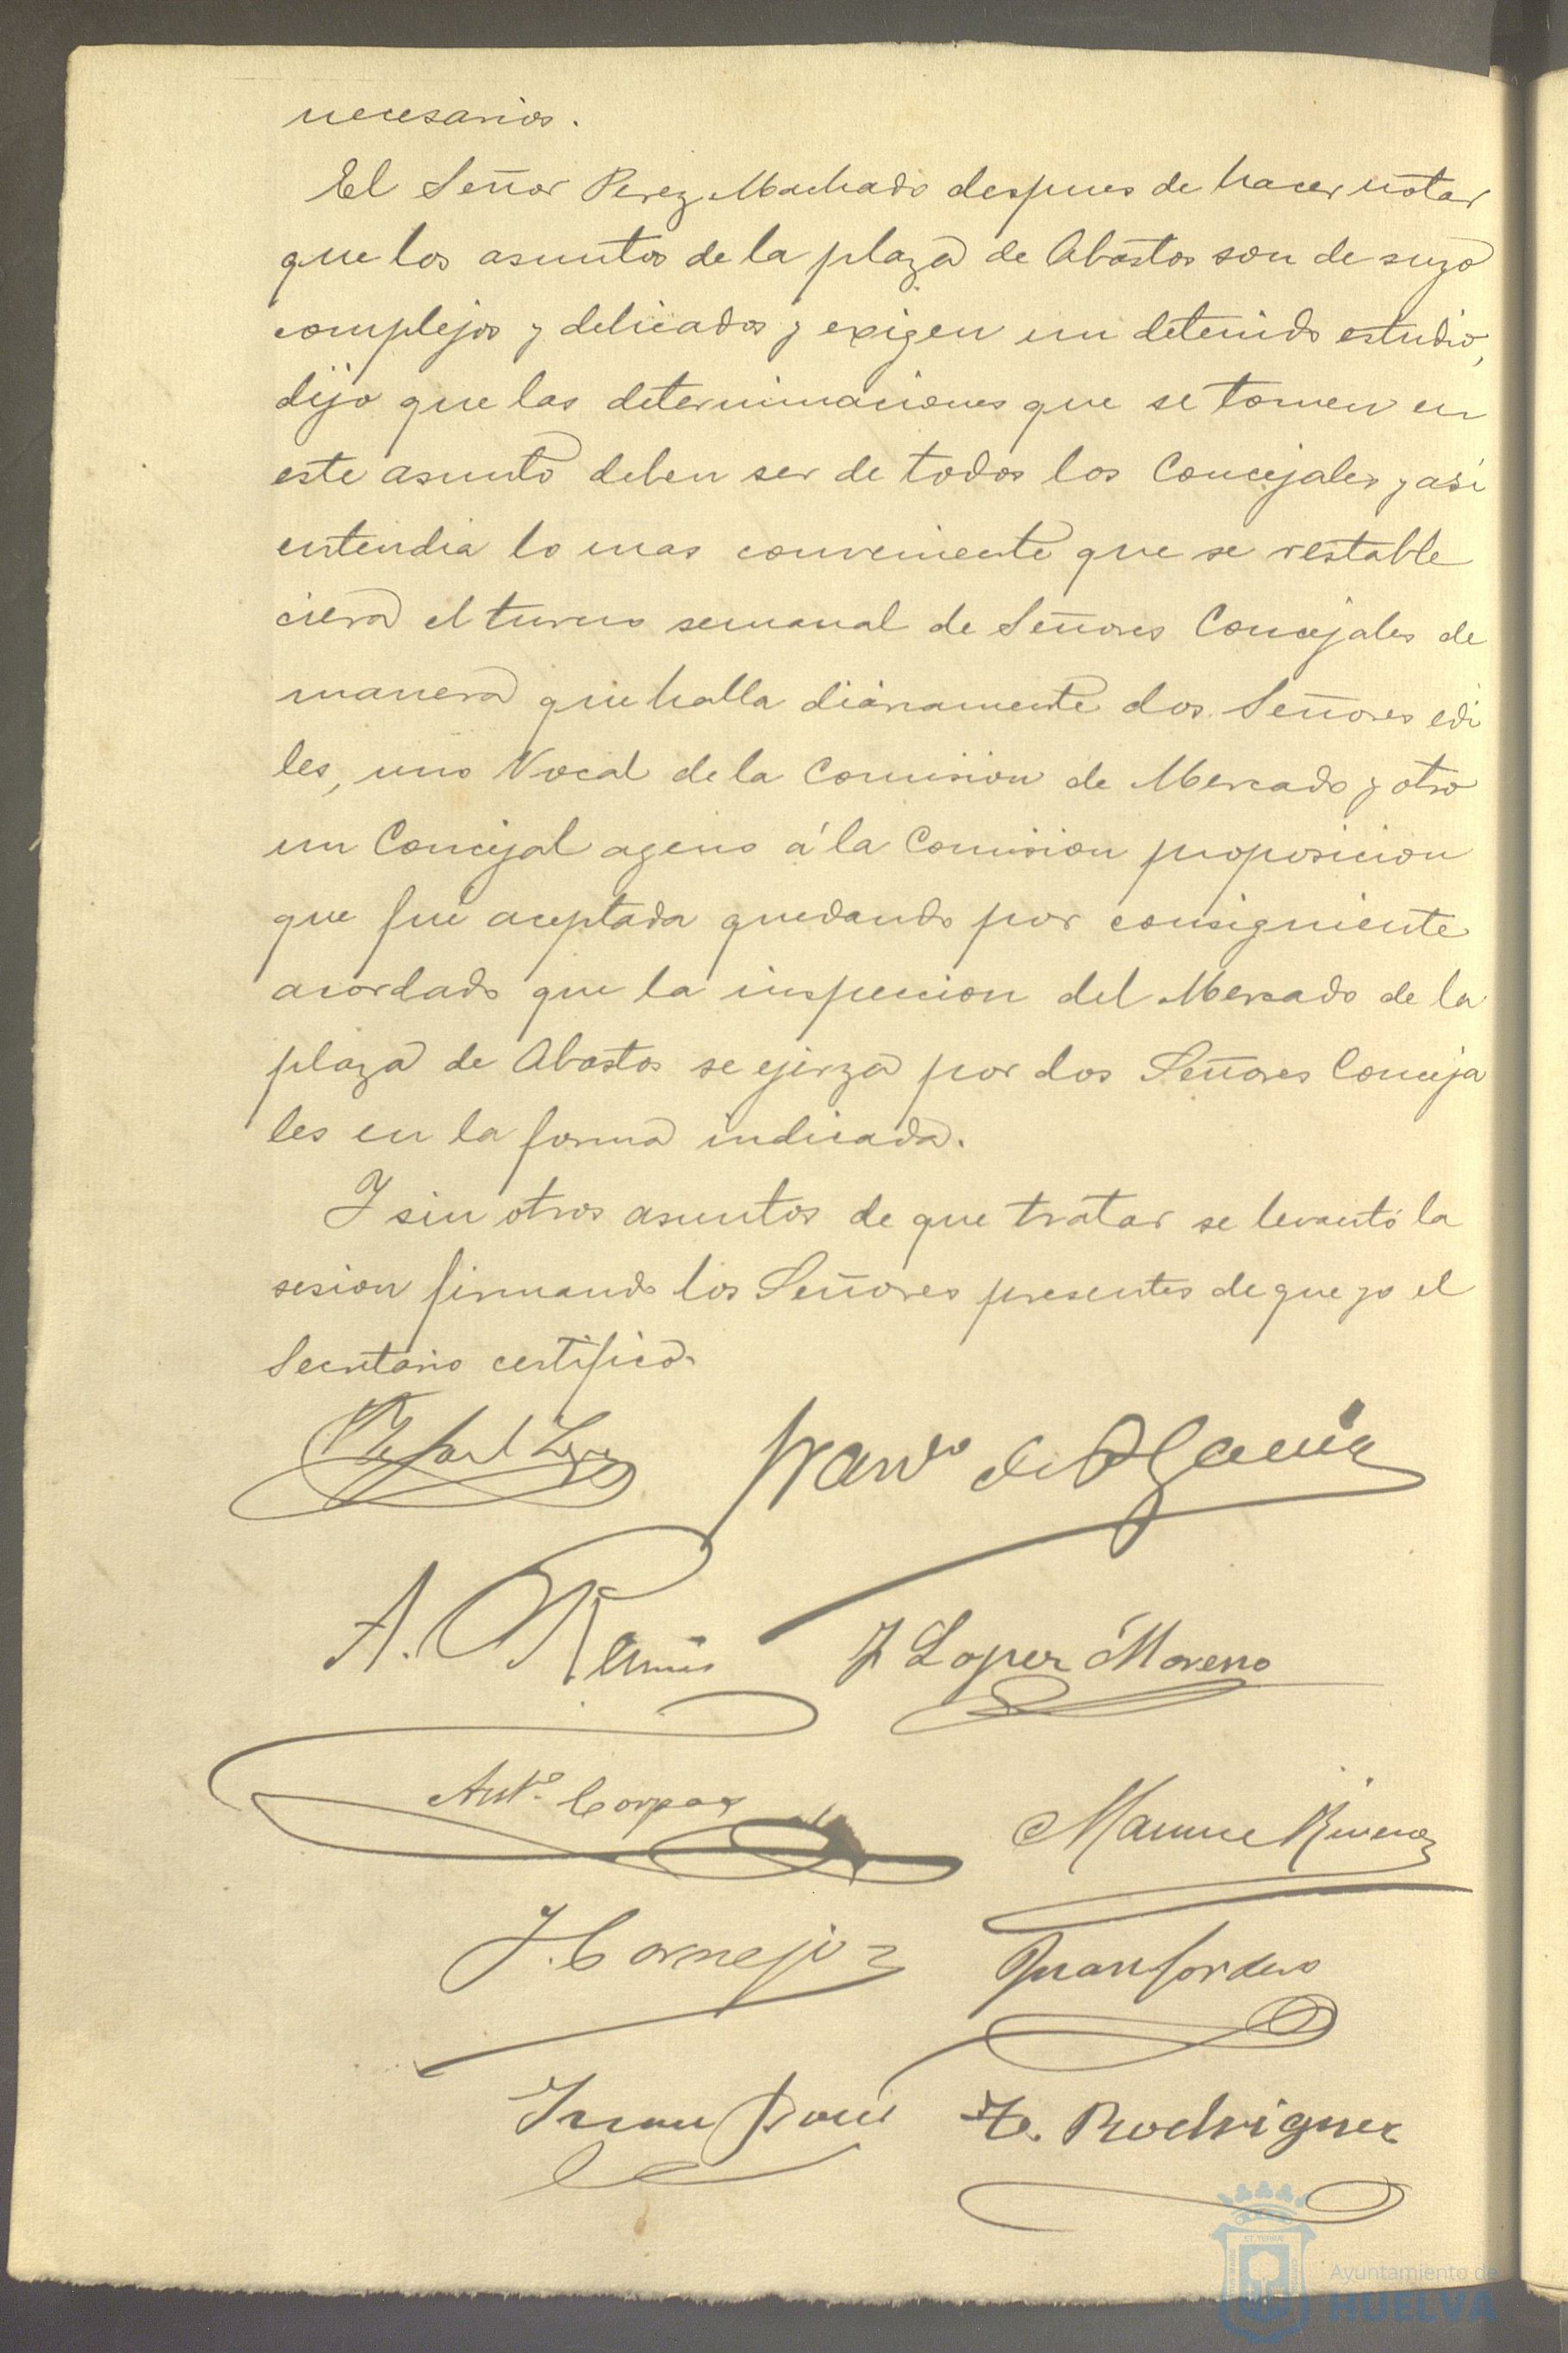 necesarios.
El Señor Perez Machado despues de hacer notar
que los asuntos de la plaza de Abastos son de suyo
complejos y delicados y exigen un detenido estudio,
dijo que las determinaciones que se tomen en
este asunto deben ser de todos los Concejales y asi
entendia lo mas conveniente que se restable
ciera el turno semanal de Señores Concejales de
manera que halla diariamente dos Señores edi
les, uno Vocal de la Comision de Mercado y otro
un Concejal ageno á la Comision proposicion
que fue aceptada quedando por consiguiente
acordado que la inspeccion del Mercado de la
plaza de Abastos se ejerza por dos Señores Conceja
les en la forma indicada.
Y sin otros asuntos de que tratar se levantó la
sesion firmando los Señores presentes de que yo el
Secretario certifico.
Rafael Franco de
A. J Lopez Moreno
Anto. Corpas
J. Cornejo
Juan Rodriguez
Ayuntamiento de
HUELVA